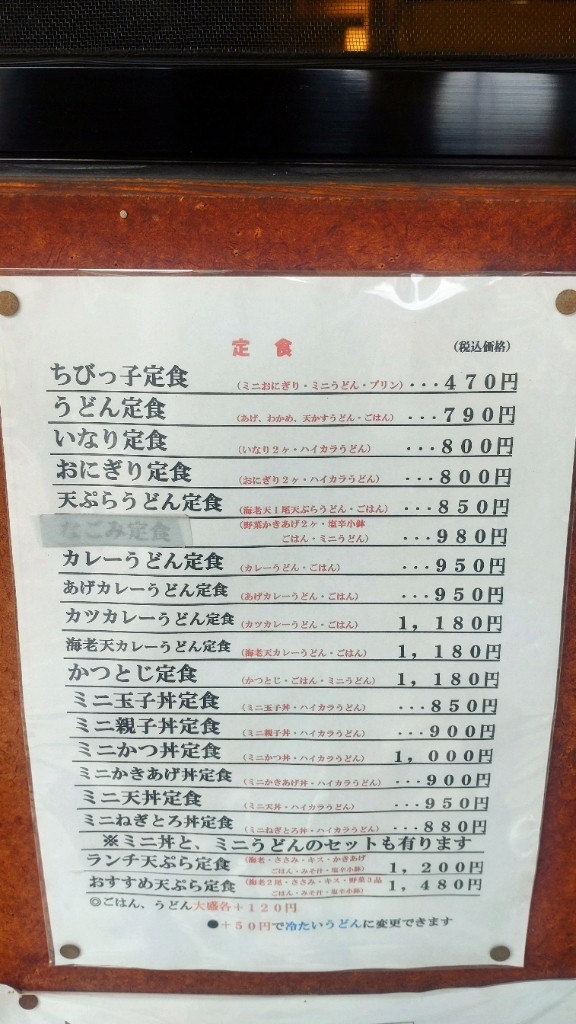 定食 (税込価格)
ちびっ子定食 (ミニおにぎり・ミニうどん・プリン) ・・・470円
うどん定食 (あげ、わかめ、天かすうどん・ごはん) ・・・790円
いなり定食 (いなり2ヶ・ハイカラうどん) ・・・800円
おにぎり定食 (おにぎり2ヶ・ハイカラうどん) ・・・800円
天ぷらうどん定食 (海老天1尾天ぷらうどん・ごはん) ・・・850円
なごみ定食 (野菜かきあげ2ヶ・塩辛小鉢
ごはん・ミニうどん) ・・・980円
カレーうどん定食 (カレーうどん・ごはん) ・・・950円
あげカレーうどん定食 (あげカレーうどん・ごはん) ・・・950円
カツカレーうどん定食 (カツカレーうどん・ごはん) 1,180円
海老天カレーうどん定食 (海老天カレーうどん・ごはん) 1,180円
かつとじ定食 (かつとじ・ごはん・ミニうどん) 1,180円
ミニ玉子丼定食 (ミニ玉子丼・ハイカラうどん) ・・・850円
ミニ親子丼定食 (ミニ親子丼・ハイカラうどん) ・・・900円
ミニかつ丼定食 (ミニかつ丼・ハイカラうどん) 1,000円
ミニかきあげ丼定食 (ミニかきあげ丼・ハイカラうどん) ・・・900円
ミニ天丼定食 (ミニ天丼・ハイカラうどん) ・・・950円
ミニねぎとろ丼定食 (ミニねぎとろ丼・ハイカラうどん) ・・・880円
※ミニ丼と、ミニうどんのセットも有ります
ランチ天ぷら定食 (海老・ささみ・キス・かきあげ
ごはん・みそ汁・塩辛小鉢) 1,200円
おすすめ天ぷら定食 (海老2尾・ささみ・キス・野菜3品
ごはん・みそ汁・塩辛小鉢) 1,480円
◎ごはん、うどん大盛各+120円
●+50円で冷たいうどんに変更できます